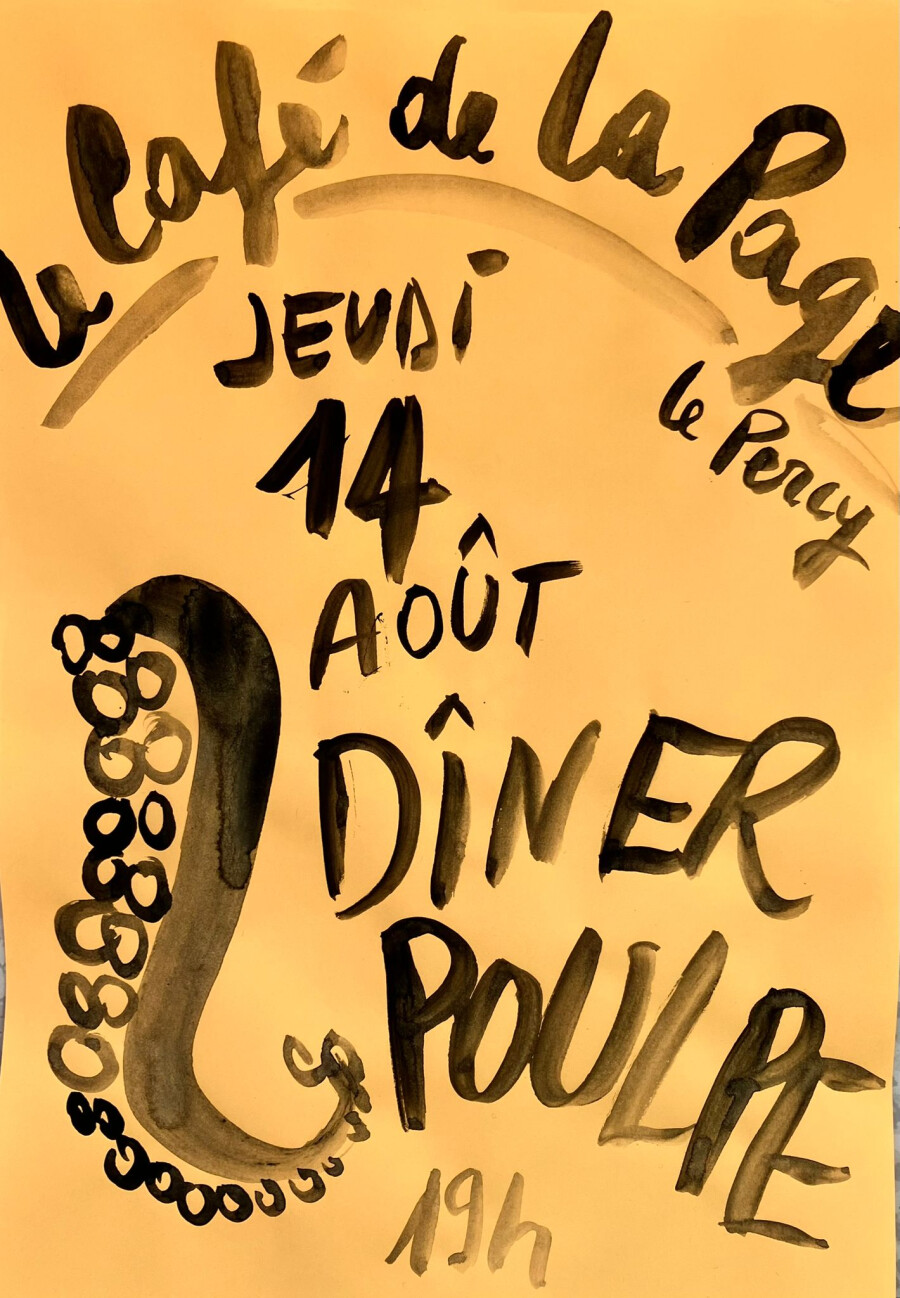 Le Café de la Page
le Percy
JEUDi
14
AOÛT
DÎNER
POULPE
19h